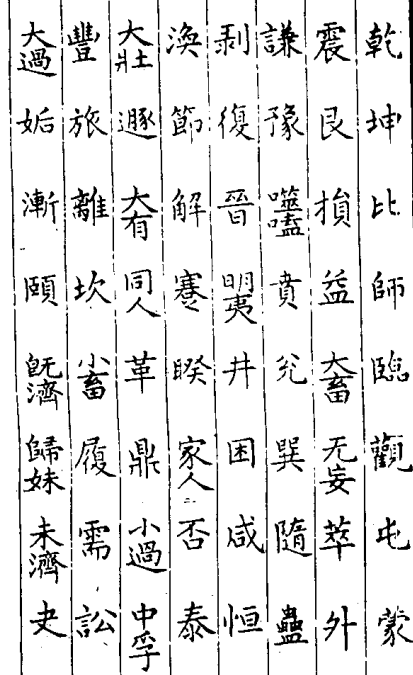 乾坤比師臨觀屯蒙
震艮損益大畜无妄萃外
謙豫噬嗑賁兊巽隨蠱
剥復晉明夷井困咸恒
渙節解蹇睽家人否泰
大壯遯大有同人革鼎小過中孚
豐旅離坎小畜履需訟
大過姤漸頤旣濟歸妹未濟夬